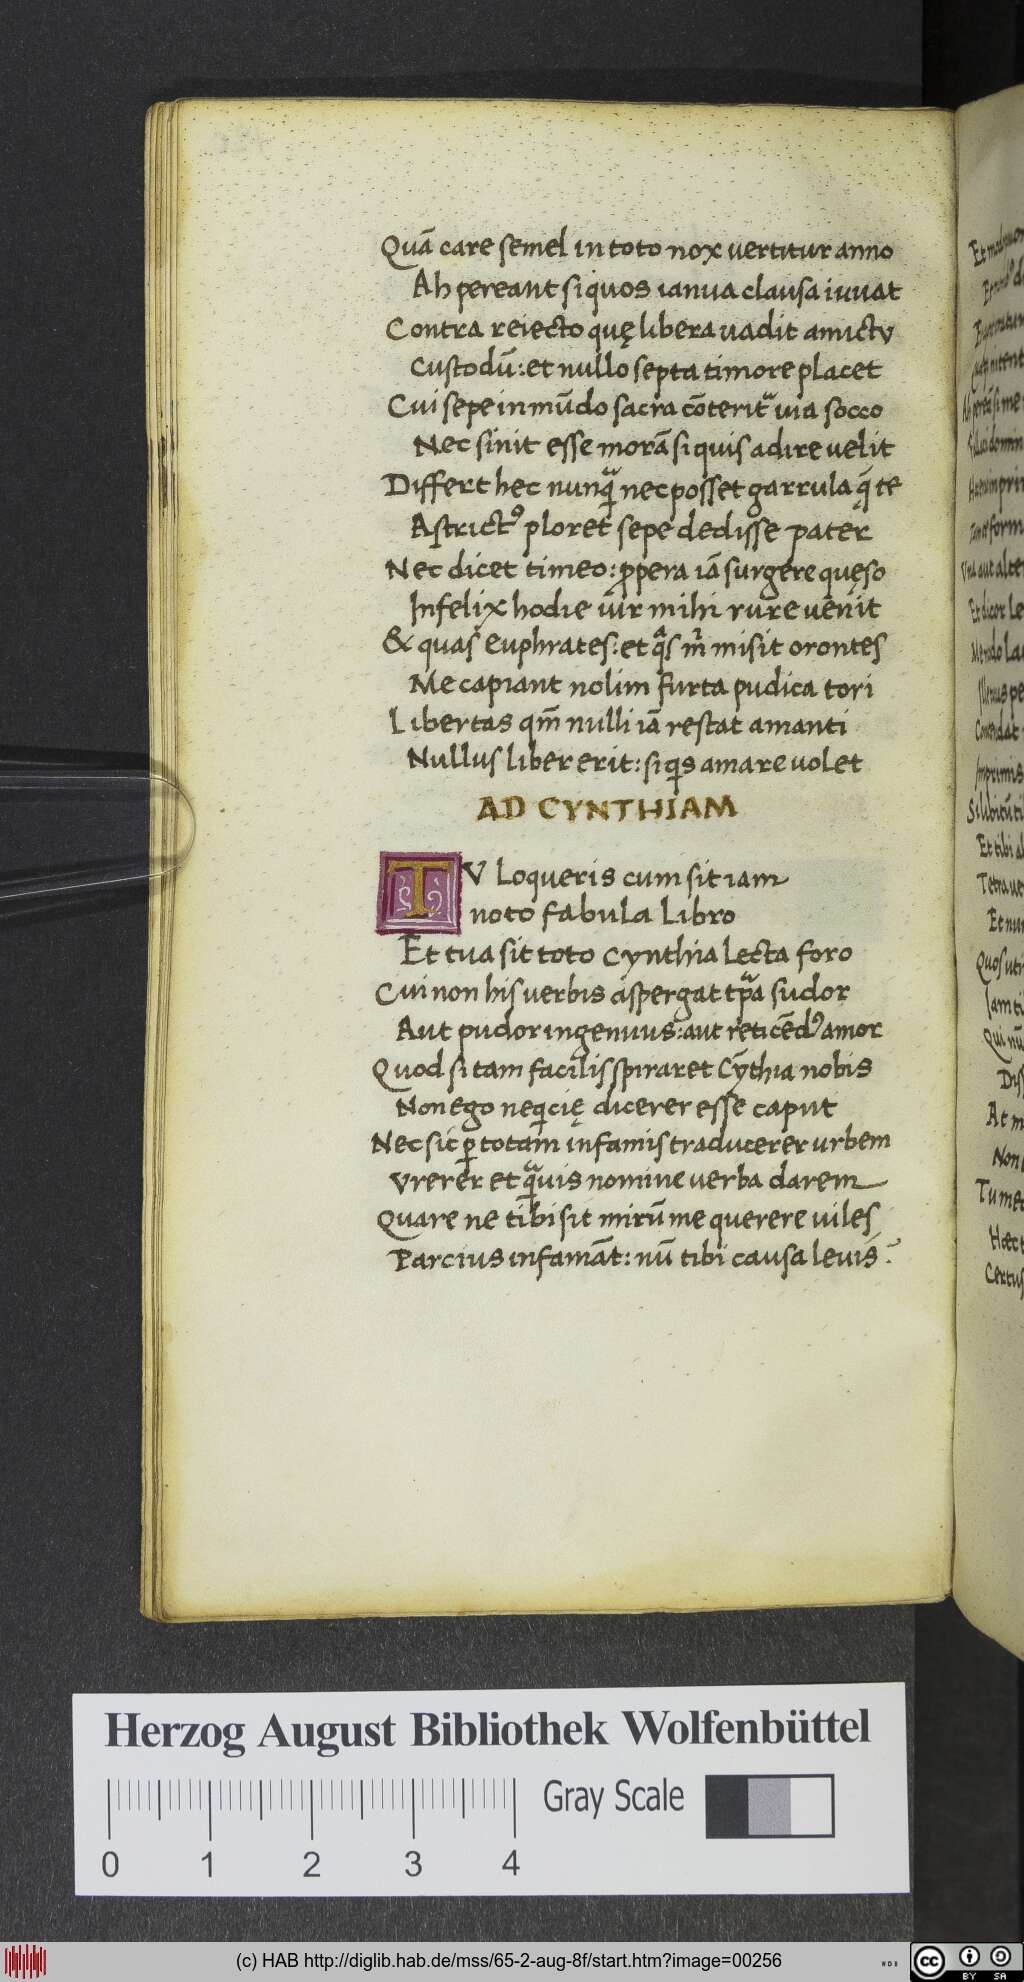 Quā care semel in toto nox vertitur anno
Ah pereant si quos ianua clausa iuuat
Contra reiecto quę libera uadit amictv
Custodū: et nullo septa timore placet
Cui sepe in mūdo sacra cōterit᷑ uia socco
Nec sinit esse morā si quis adire uelit
Differt hec nunqᷓ nec posset garrula q́ te
Astrictꝰ ploret sepe dedisse pater
Nec dicet timeo: ꝓpera iā surgere quęso
Infelix hodie uir mihi rure uenit
& quas euphrates: et qͣs m̊ misit orontes
Me capiant nolim furta pudica tori
Libertas qm̄ nulli iā restat amanti
Nullus liber erit: siqͥs amare uolet
AD CYNTHIAM
TV Loqueris cum sit iam
noto fabula Libro
Et tua sit toto Cynthia Lecta foro
Cui non his uerbis aspergat tꝑa sudor
Aut pudor ingenuus: aut reticēdꝰ amor
Quod si tam facilis spiraret Cȳthia nobis
Non ego neqcię dicerer esse caput
Nec sic ꝑ totam infamis traducerer urbem
Vrerer et qᷓuis nomine uerba darem
Quare ne tibi sit mirū me querere uiles
Parcius infamāt: nū tibi causa leuis?
Herzog August Bibliothek Wolfenbüttel
Gray Scale
0 1 2 3 4
(c) HAB http://diglib.hab.de/mss/65-2-aug-8f/start.htm?image=00256
cc BY SA